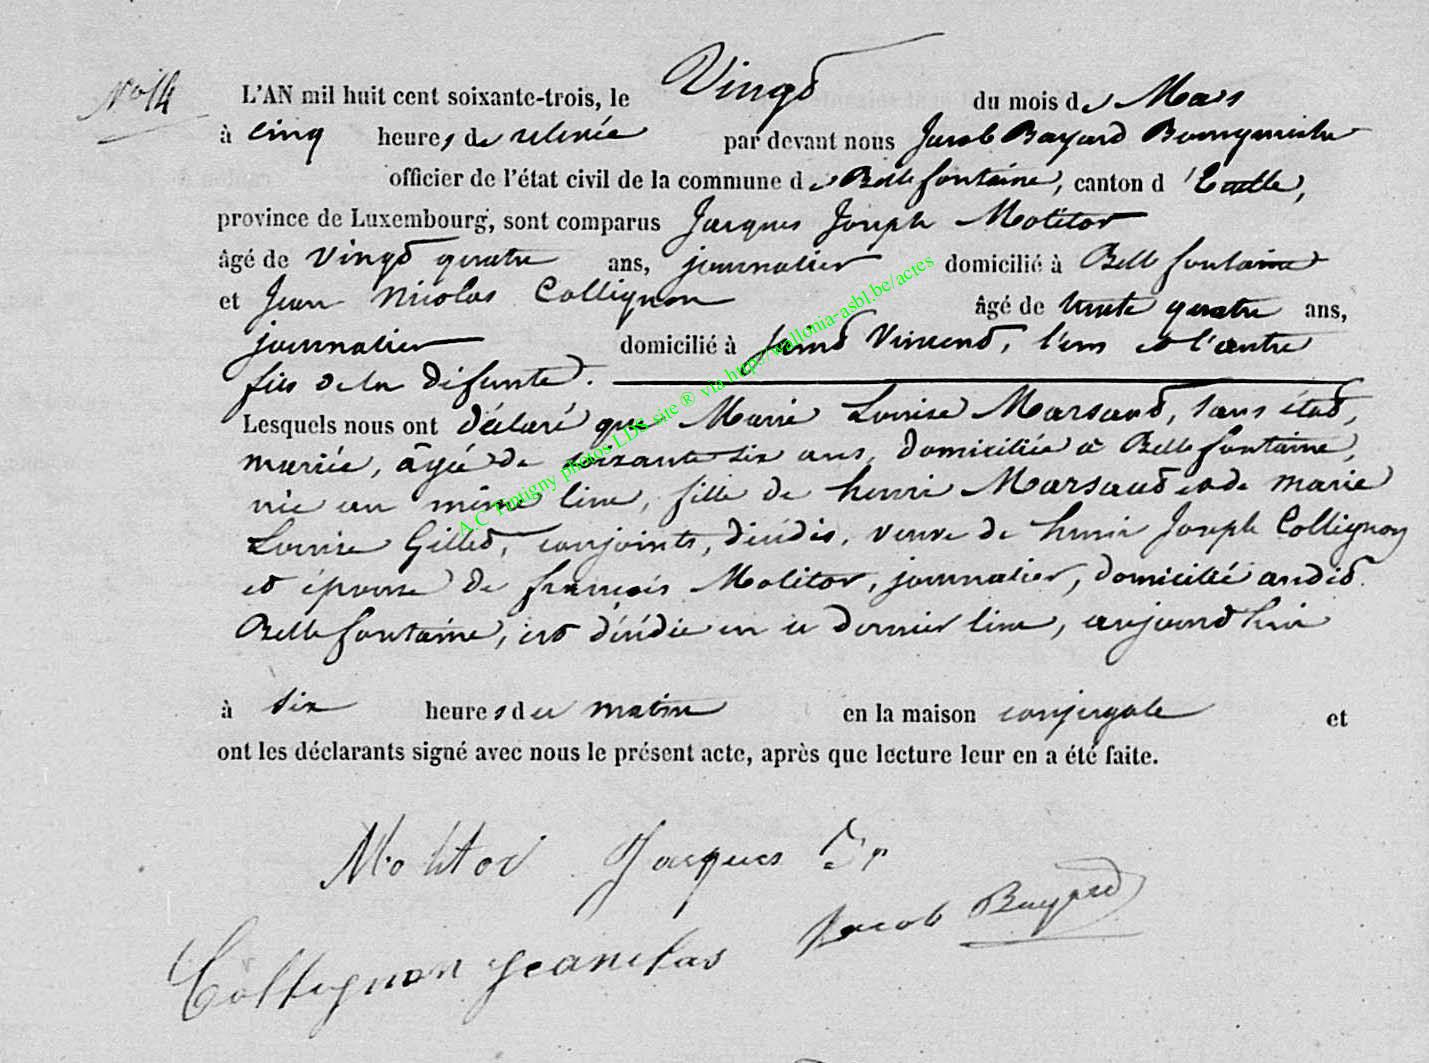 No 14
L'AN mil huit cent soixante-trois, le Vingt du mois de Mars
à cinq heures de relevée par devant nous Jacob Bayard Bourgmestre
officier de l'état civil de la commune de Bellefontaine, canton d'Etalle,
province de Luxembourg, sont comparus Jacques Joseph Molitor
âgé de vingt quatre ans, journalier domicilié à Bellefontaine
et Jean Nicolas Collignon âgé de trente quatre ans,
journalier domicilié à Saint Vincent, l'un et l'autre
fils de la défunte.
Lesquels nous ont déclaré que Marie Louise Marsaud, sans état,
mariée, âgée de soixante six ans, domiciliée à Bellefontaine,
née au même lieu, fille de henri Marsaud et de marie
Louise Gillet, conjoints, décédés, veuve de henri Joseph Collignon
et épouse de françois Molitor, journalier, domicilié audit
Bellefontaine, est décédée en ce dernier lieu, aujourd'hui
à six heures du matin en la maison conjugale et
ont les déclarants signé avec nous le présent acte, après que lecture leur en a été faite.
Molitor Jacques
Jacob Bayard
Collignon Jeanclas
A.C. Tintigny photos LDS site ® via http://wallonia-asbl.be/actes